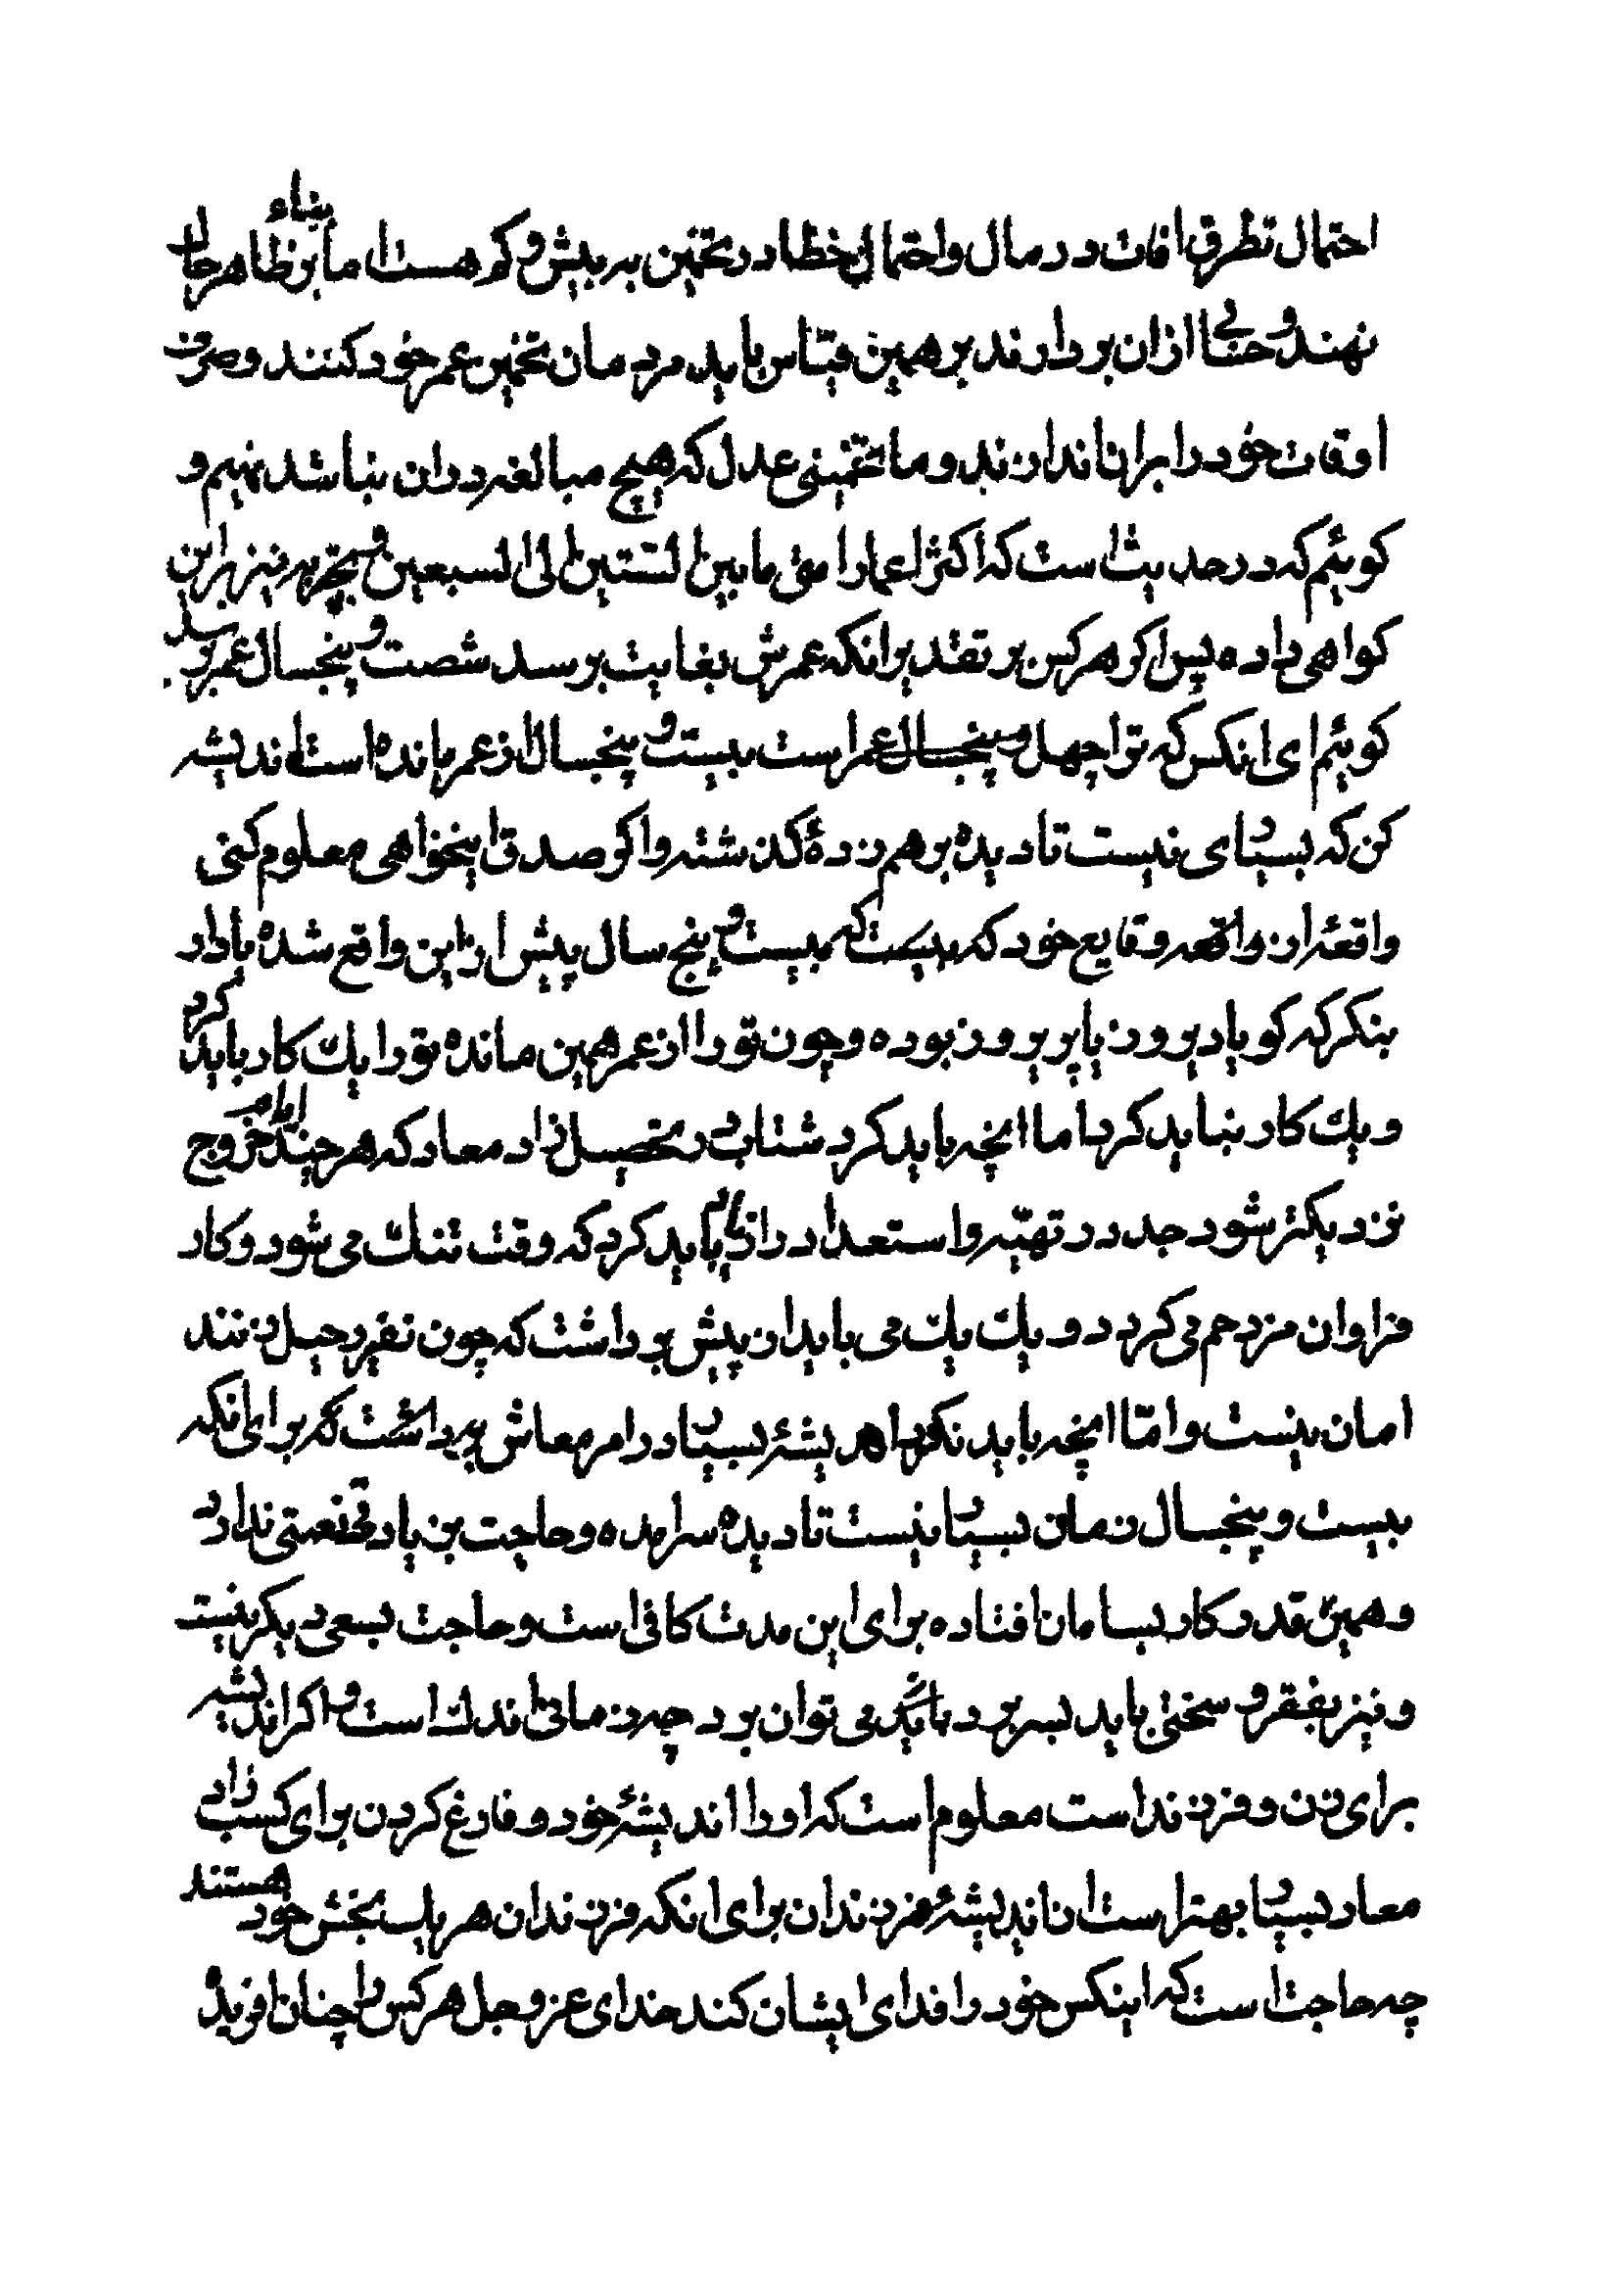 احتمال تطرق افات در مال و احتمال خطا در تخمین به بیش و کم هست اما بناء بر ظاهر حال
نهند و حسابی ازان بردارند بر همین قیاس باید مردمان تخمین عمر خود کنند و صرف
اوقات خود را بران اندازند و ما تخمینی عدل که هیچ مبالغه دران نباشد نهیم و
کوئیم که در حدیث است که اکثر اعمار امتی ما بین الستین الی السبعین و تجربه نیز براین
کواهی داده پس اکر هر کس بر تقدیر انکه عمرش بغایت برسد شصت و پنجسال عمر برسد
کوئیم ای انکس که ترا چهل و پنجسال عمر است بیست و پنجسال از عمر مانده است اندیشه
کن که بسیاری نیست تا دیده بر هم زدهٔ کذشته و اکر صدق این خواهی معلوم کنی
واقعهٔ از وقایع خود که بیست و پنج سال پیش از این واقع شده یاد ار
بنکر که کویا دیروز یا پریروز بوده و چون تو را از عمر همین مانده تو را یک کار باید کرد
و یک کار نباید کرد اما انچه باید کرد شتاب در تحصیل زاد معاد که هر چند ایام خروج
نزدیکتر شود جد در تهیّه و استعداد زاد راه باید کرد که وقت تنک می شود و کار
فراوان مزدحم می کردد و یک یک می باید از پیش برداشت که چون نفیر رحیل زنند
امان نیست و امّا انچه باید نکرد اندیشهٔ بسیار در امر معاش برداشت که برای انکه
بیست و پنجسال زمان بسیار نیست تا دیده سرامده و حاجت بزیادتی نعمتی ندارد
و همین قدر کار بسامان افتاده برای این مدت کافی است و حاجت بسعی دیکر نیست
و نیز بفقر و سختی باید بسر برد می توان برد چه زمانی اندک است و اکر اندیشه
برای زن و فرزند است معلوم است که او را اندیشهٔ خود و فارغ کردن برای کسب زاد
معاد بسیار بهتر است از اندیشهٔ فرزندان برای انکه فرزندان هر یک بخش خود هستند
چه حاجت است که اینکس خود را فدای ایشان کند خدای عز و جل هر کس را چنان افریده